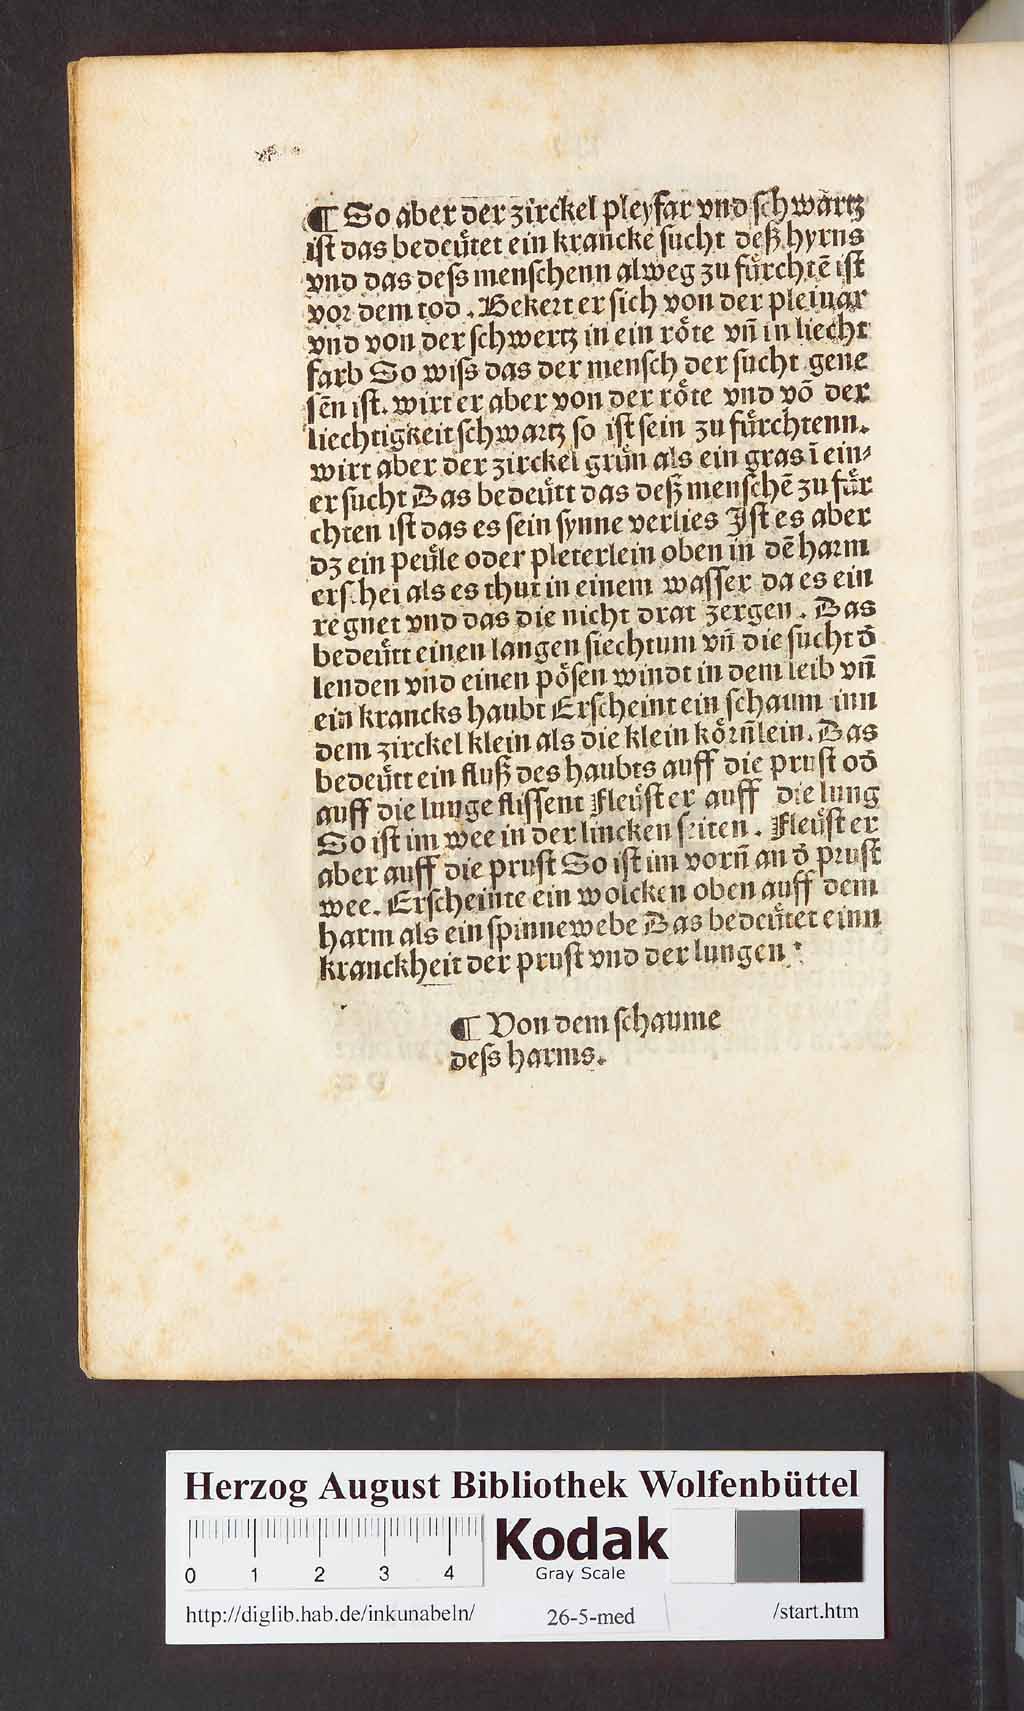 ¶ So aber der zirckel pleyfar vnd ſchwartz
iſt das bedeu̇tet ein krancke ſucht deß hyrns
vnd das deſs menſchenn alweg zu fu̇rchtē iſt
vor dem tod. Bekert er ſich von der pleiuar
vnd von der ſchwertz in ein rőte vñ in liecht
farb So wiſs das der menſch der ſucht gene
ſēn iſt. wirt er aber von der rőte vnd vō der
liechtigkeit ſchwartz ſo iſt ſein zu fu̇rchtenn.
wirt aber der zirckel gru̇n als ein gras ī ein⸗
er ſucht Das bedeu̇tt das deß menſchē zu fu̇r
chten iſt das es ſein ſynne verlies Iſt es aber
dz ein peu̇le oder pleterlein oben in dē harm
erſchei als es thut in einem waſſer da es ein
regnet vnd das die nicht drat zergen. Das
bedeu̇tt einen langen ſiechtum vñ die ſucht d̄
lenden vnd einen pőſen windt in dem leib vñ
ein krancks haubt Erſcheint ein ſchaum inn
dem zirckel klein als die klein kőrñlein. Das
bedeu̇tt ein fluß des haubts auff die pruſt od̄
auff die lunge fliſſent Fleu̇ſt er auff die lung
So iſt im wee in der lincken ſeiten. Fleu̇ſt er
aber auff die pruſt So iſt im vorñ an d̄ pruſt
wee. Erſcheinte ein wolcken oben auff dem
harm als ein ſpinnewebe Das bedeu̇tet einn
kranckheit der pruſt vnd der lungen:
¶ Von dem ſchaume
deſs harms.
Herzog August Bibliothek Wolfenbüttel
0 1 2 3 4
Kodak
Gray Scale
http://diglib.hab.de/inkunabeln/ 26-5-med /start.htm